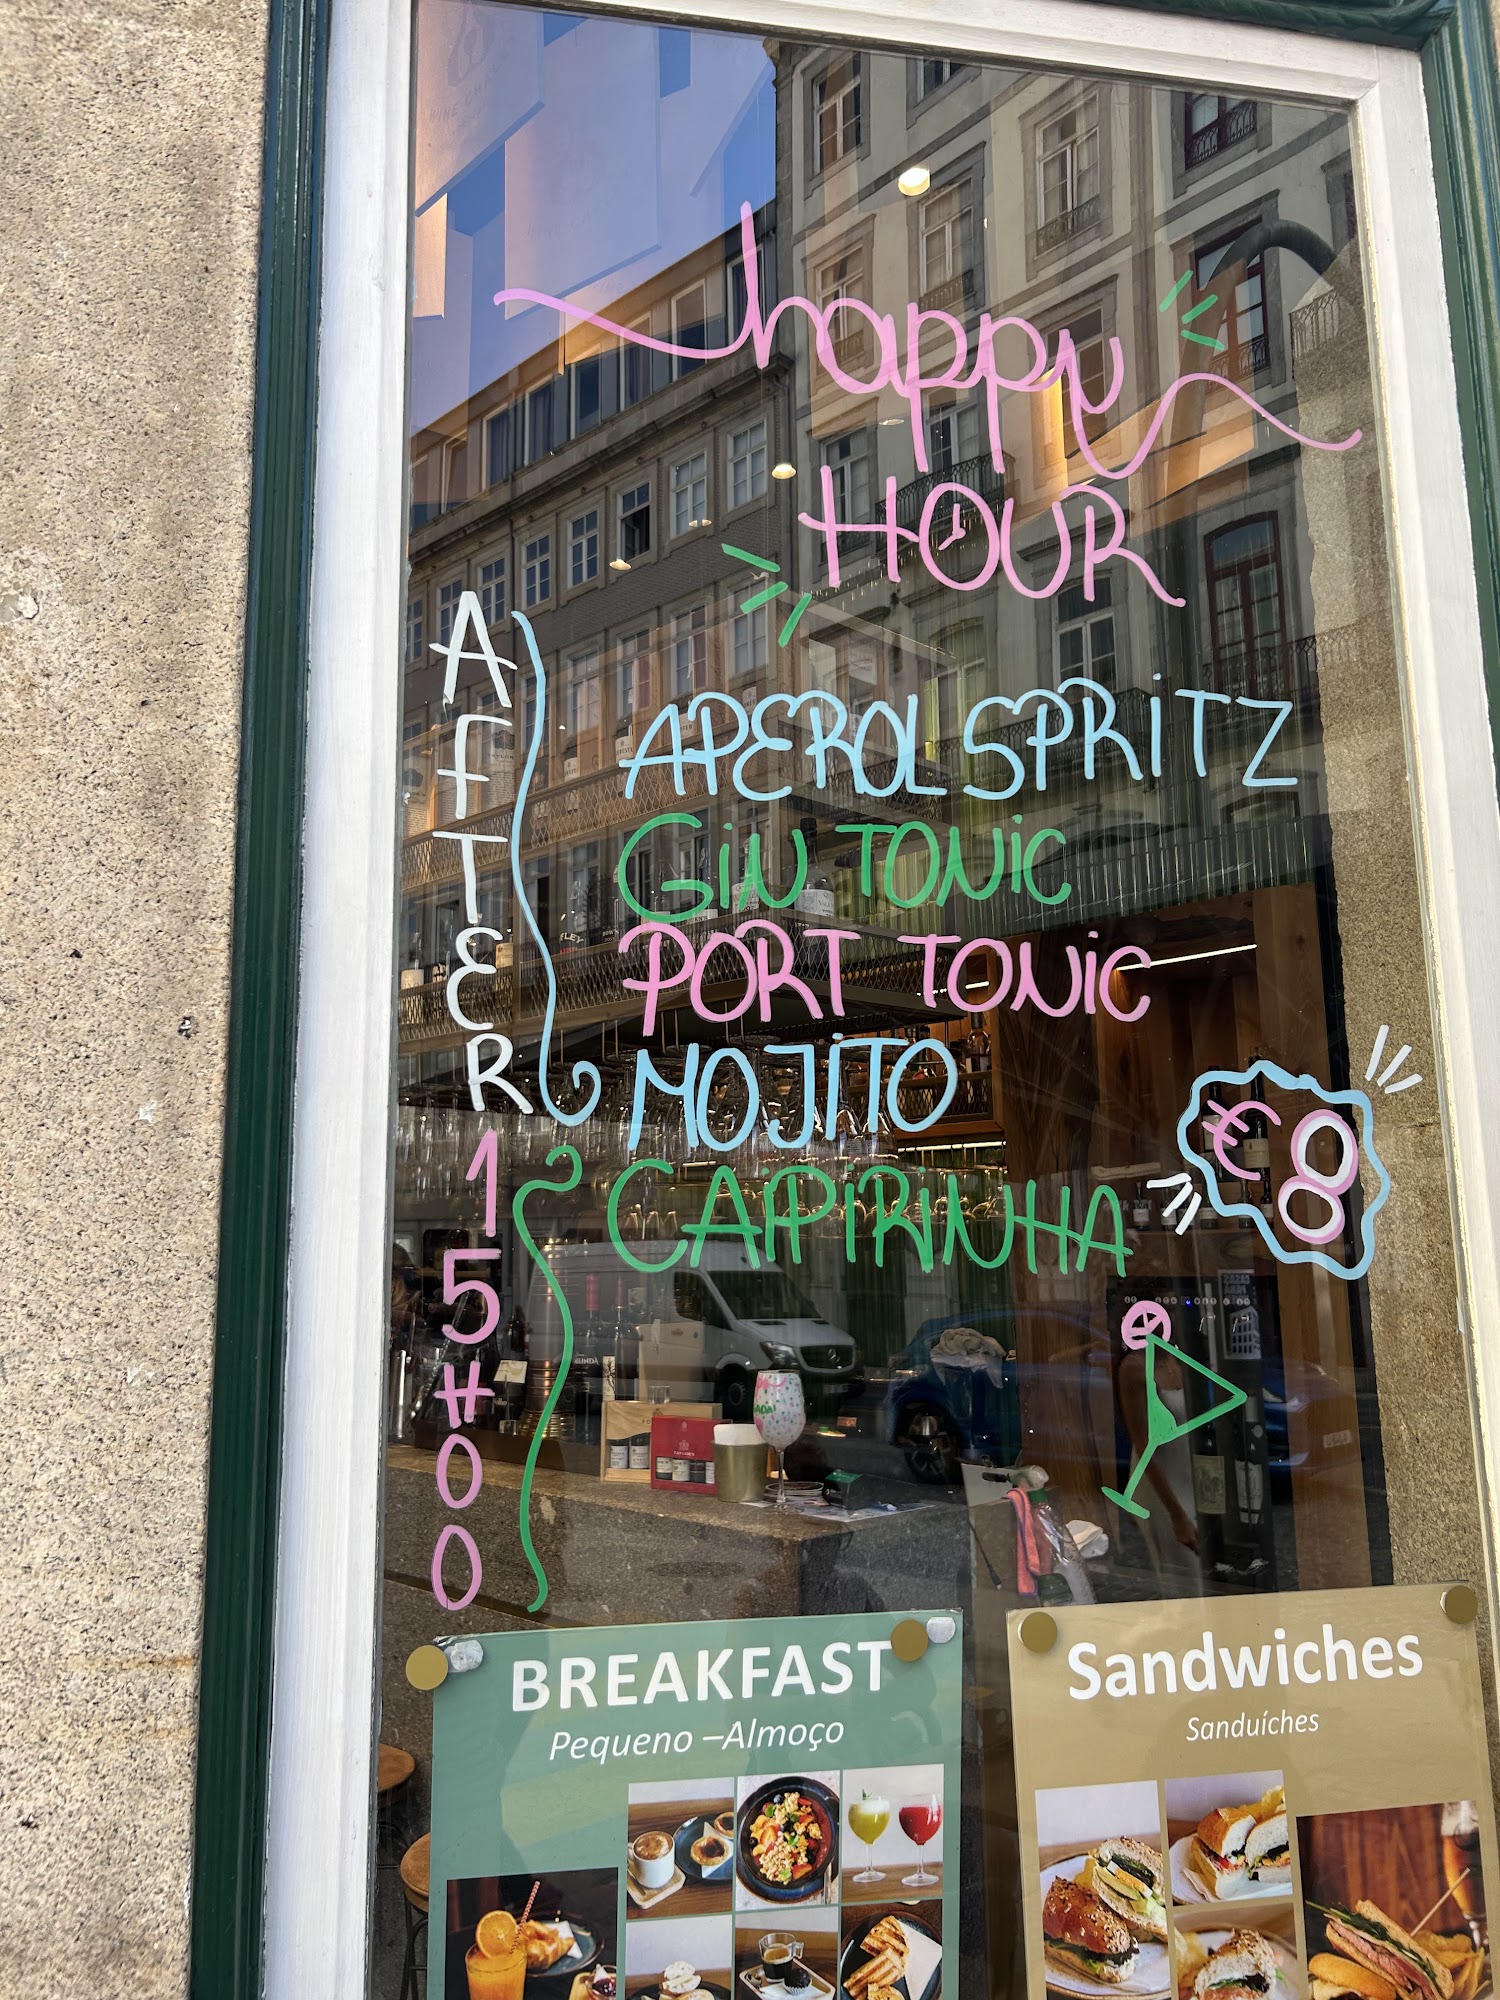 happy
HOUR
AFTER 15H00
APEROL SPRITZ
GIN TONIC
PORT TONIC
MOJITO
CAIPIRINHA
€8
BREAKFAST
Pequeno –Almoço
Sandwiches
Sanduíches